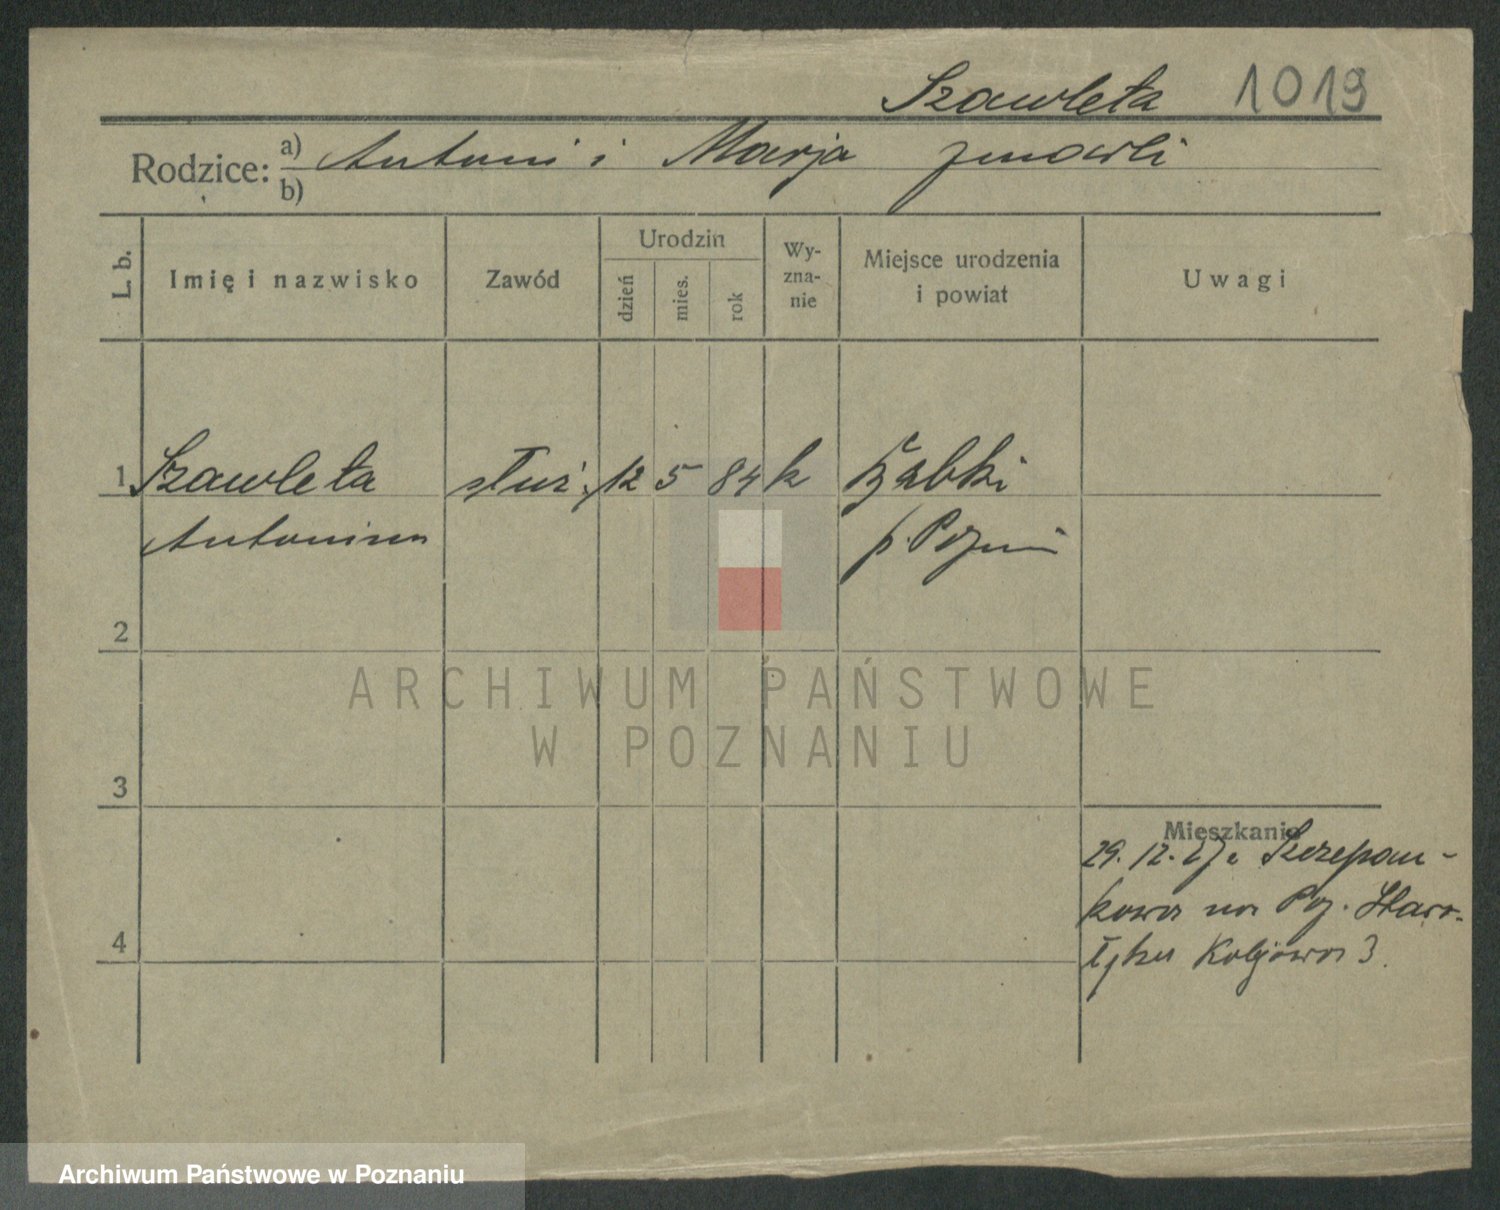 Szawleta 1019
Rodzice: a) Antoni i Marja zmarli
b)
L. b.
Imię i nazwisko
Zawód
Urodzin
dzień
mies.
rok
Wy-
zna-
nie
Miejsce urodzenia
i powiat
Uwagi
1 Szawleta służ. 12 5 84 k Ząbki
Antonina p. Pozn
2
3
4
Mieszkanie
29. 12. 27. Szczepan-
kowa na Poz. Staro-
łęka Kolejowa 3.
ARCHIWUM PAŃSTWOWE
W POZNANIU
Archiwum Państwowe w Poznaniu